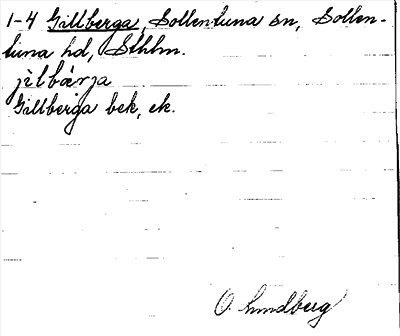 1-4 Gillberga, Sollentuna sn, Sollen-
tuna hd, Sthlm.
jìlbærja
Gillberga bek, ek.
O. Lundberg